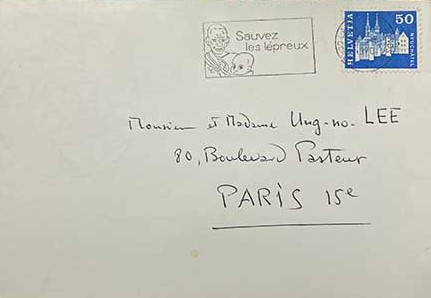 Sauvez
les lépreux
HELVETIA
50
NEUCHÂTEL
Monsieur et Madame Ung-no-LEE
80, Boulevard Pasteur
PARIS 15e